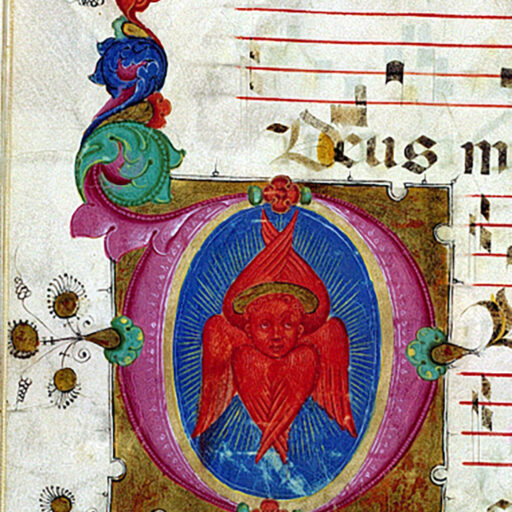 Deus m